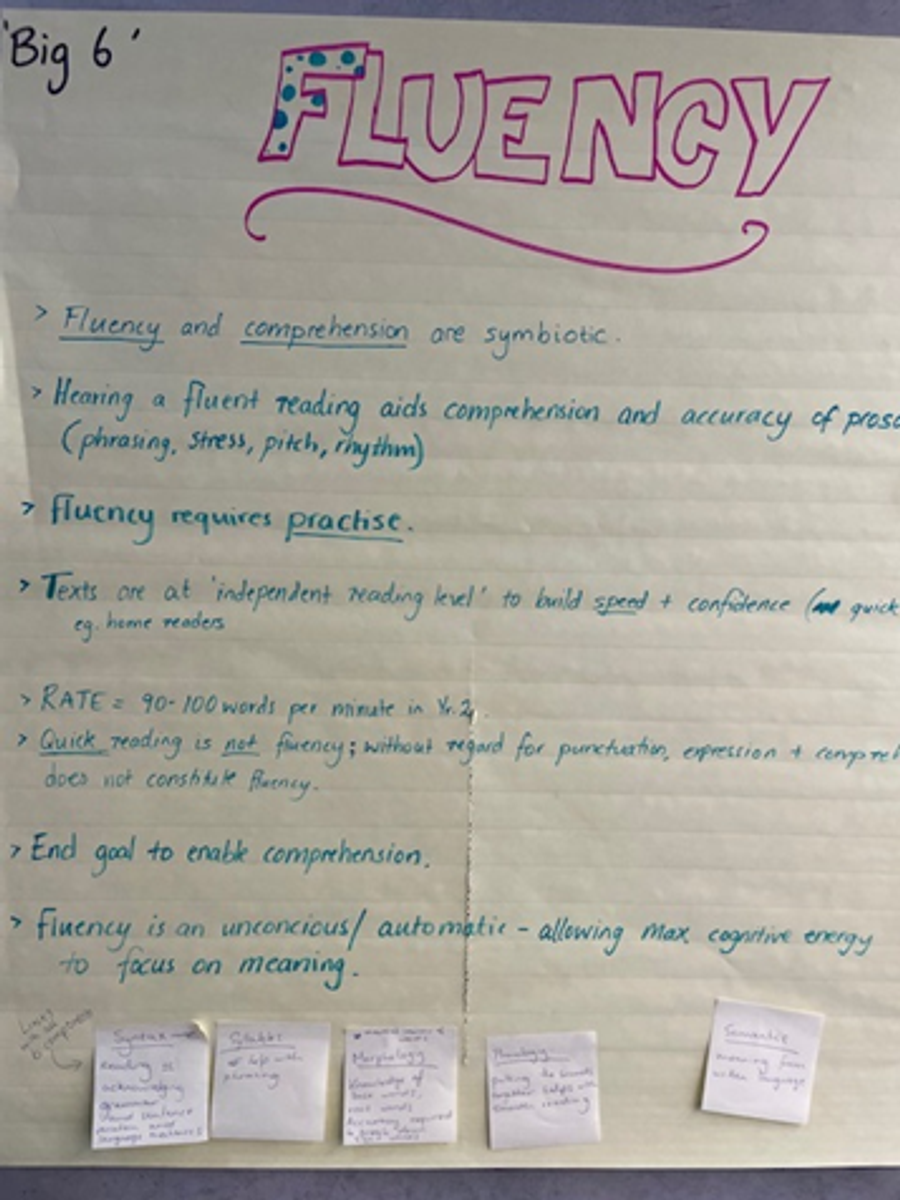 'Big 6'
FLUENCY
> Fluency and comprehension are symbiotic.
> Hearing a fluent reading aids comprehension and accuracy of proso
(phrasing, stress, pitch, rhythm)
> Fluency requires practise.
> Texts are at 'independent reading level' to build speed + confidence ( quick
eg. home readers
> RATE = 90-100 words per minute in Yr. 2.
> Quick reading is not fluency; without regard for punctuation, expression + compreh
does not constitute fluency.
> End goal to enable comprehension.
> Fluency is an unconcious/ automatic - allowing max cognitive energy
to focus on meaning.
Syntax
reading is
acknowledging
grammar
and sentence
and
language features
Syllables
help with
phrasing
Morphology
Knowledge of
base words,
root words
Accuracy required
Phonology
putting the sounds
together helps with
smooth reading
Semantic
meaning from
written language